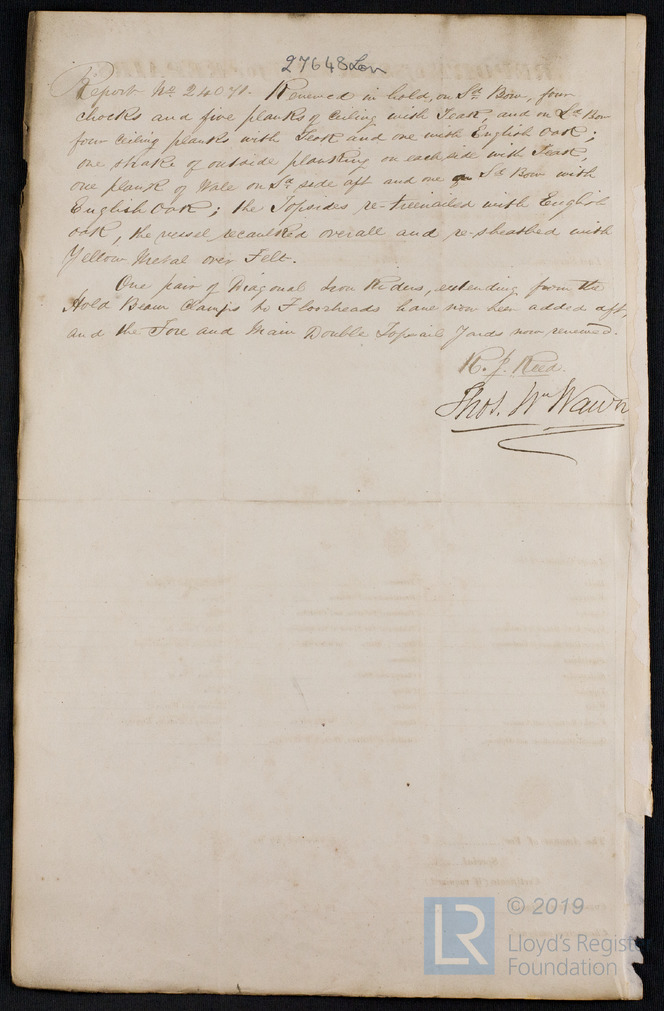 27648 Lon
Report No. 24071. Renewed in hold, on Sd. Bow, four
chocks and five planks of Ceiling with Teak, and on Ld. Bow
four Ceiling planks with Teak and one with English Oak;
one strake of outside planking on each side with Teak,
one plank of Wale on Sd. side aft and one Sd. Bow with
English Oak; the Topsides re-treenailed with English
Oak, the vessel recaulked overall and re-sheathed with
Yellow Metal over Felt.
One pair of Diagonal Iron Riders, extending from the
Hold Beam Clamps to Floorheads have now been added aft,
and the Fore and Main Double Topsail Yards now renewed.
R. J. Reed.
Thos. Wm Wawn
© 2019
LR
Lloyd's Registe
Foundation